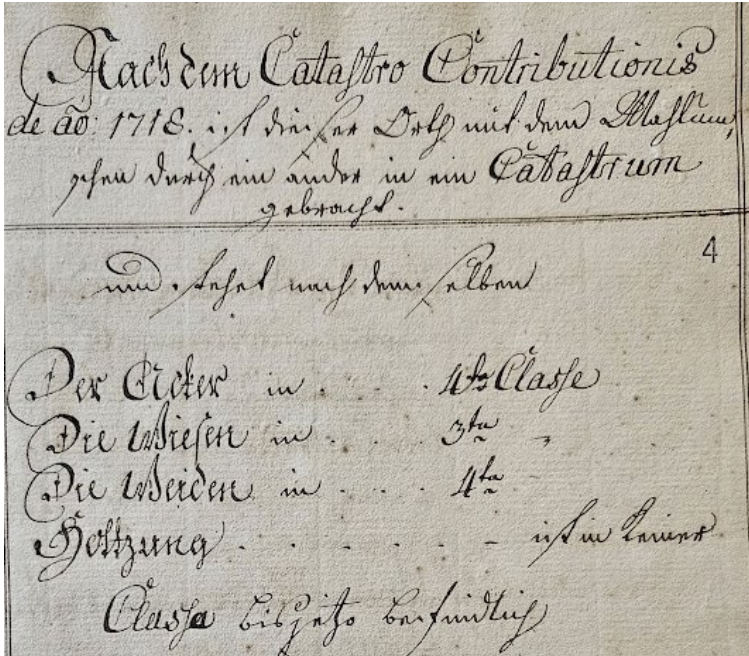 Nach dem Catastro Contributionis
de ao: 1718. ist dieser Orth mit dem Mahlum,
schen durch ein ander in ein Catastrum
gebracht.
4
und stehet nach dem selben
Der Acker in . . . . 4ta Classe
Die Wiesen in . . . . 3ta "
Die Weiden in . . . . 4ta
Holtzung . . . . . - ist in keiner
Classa bis jetzo befindlich